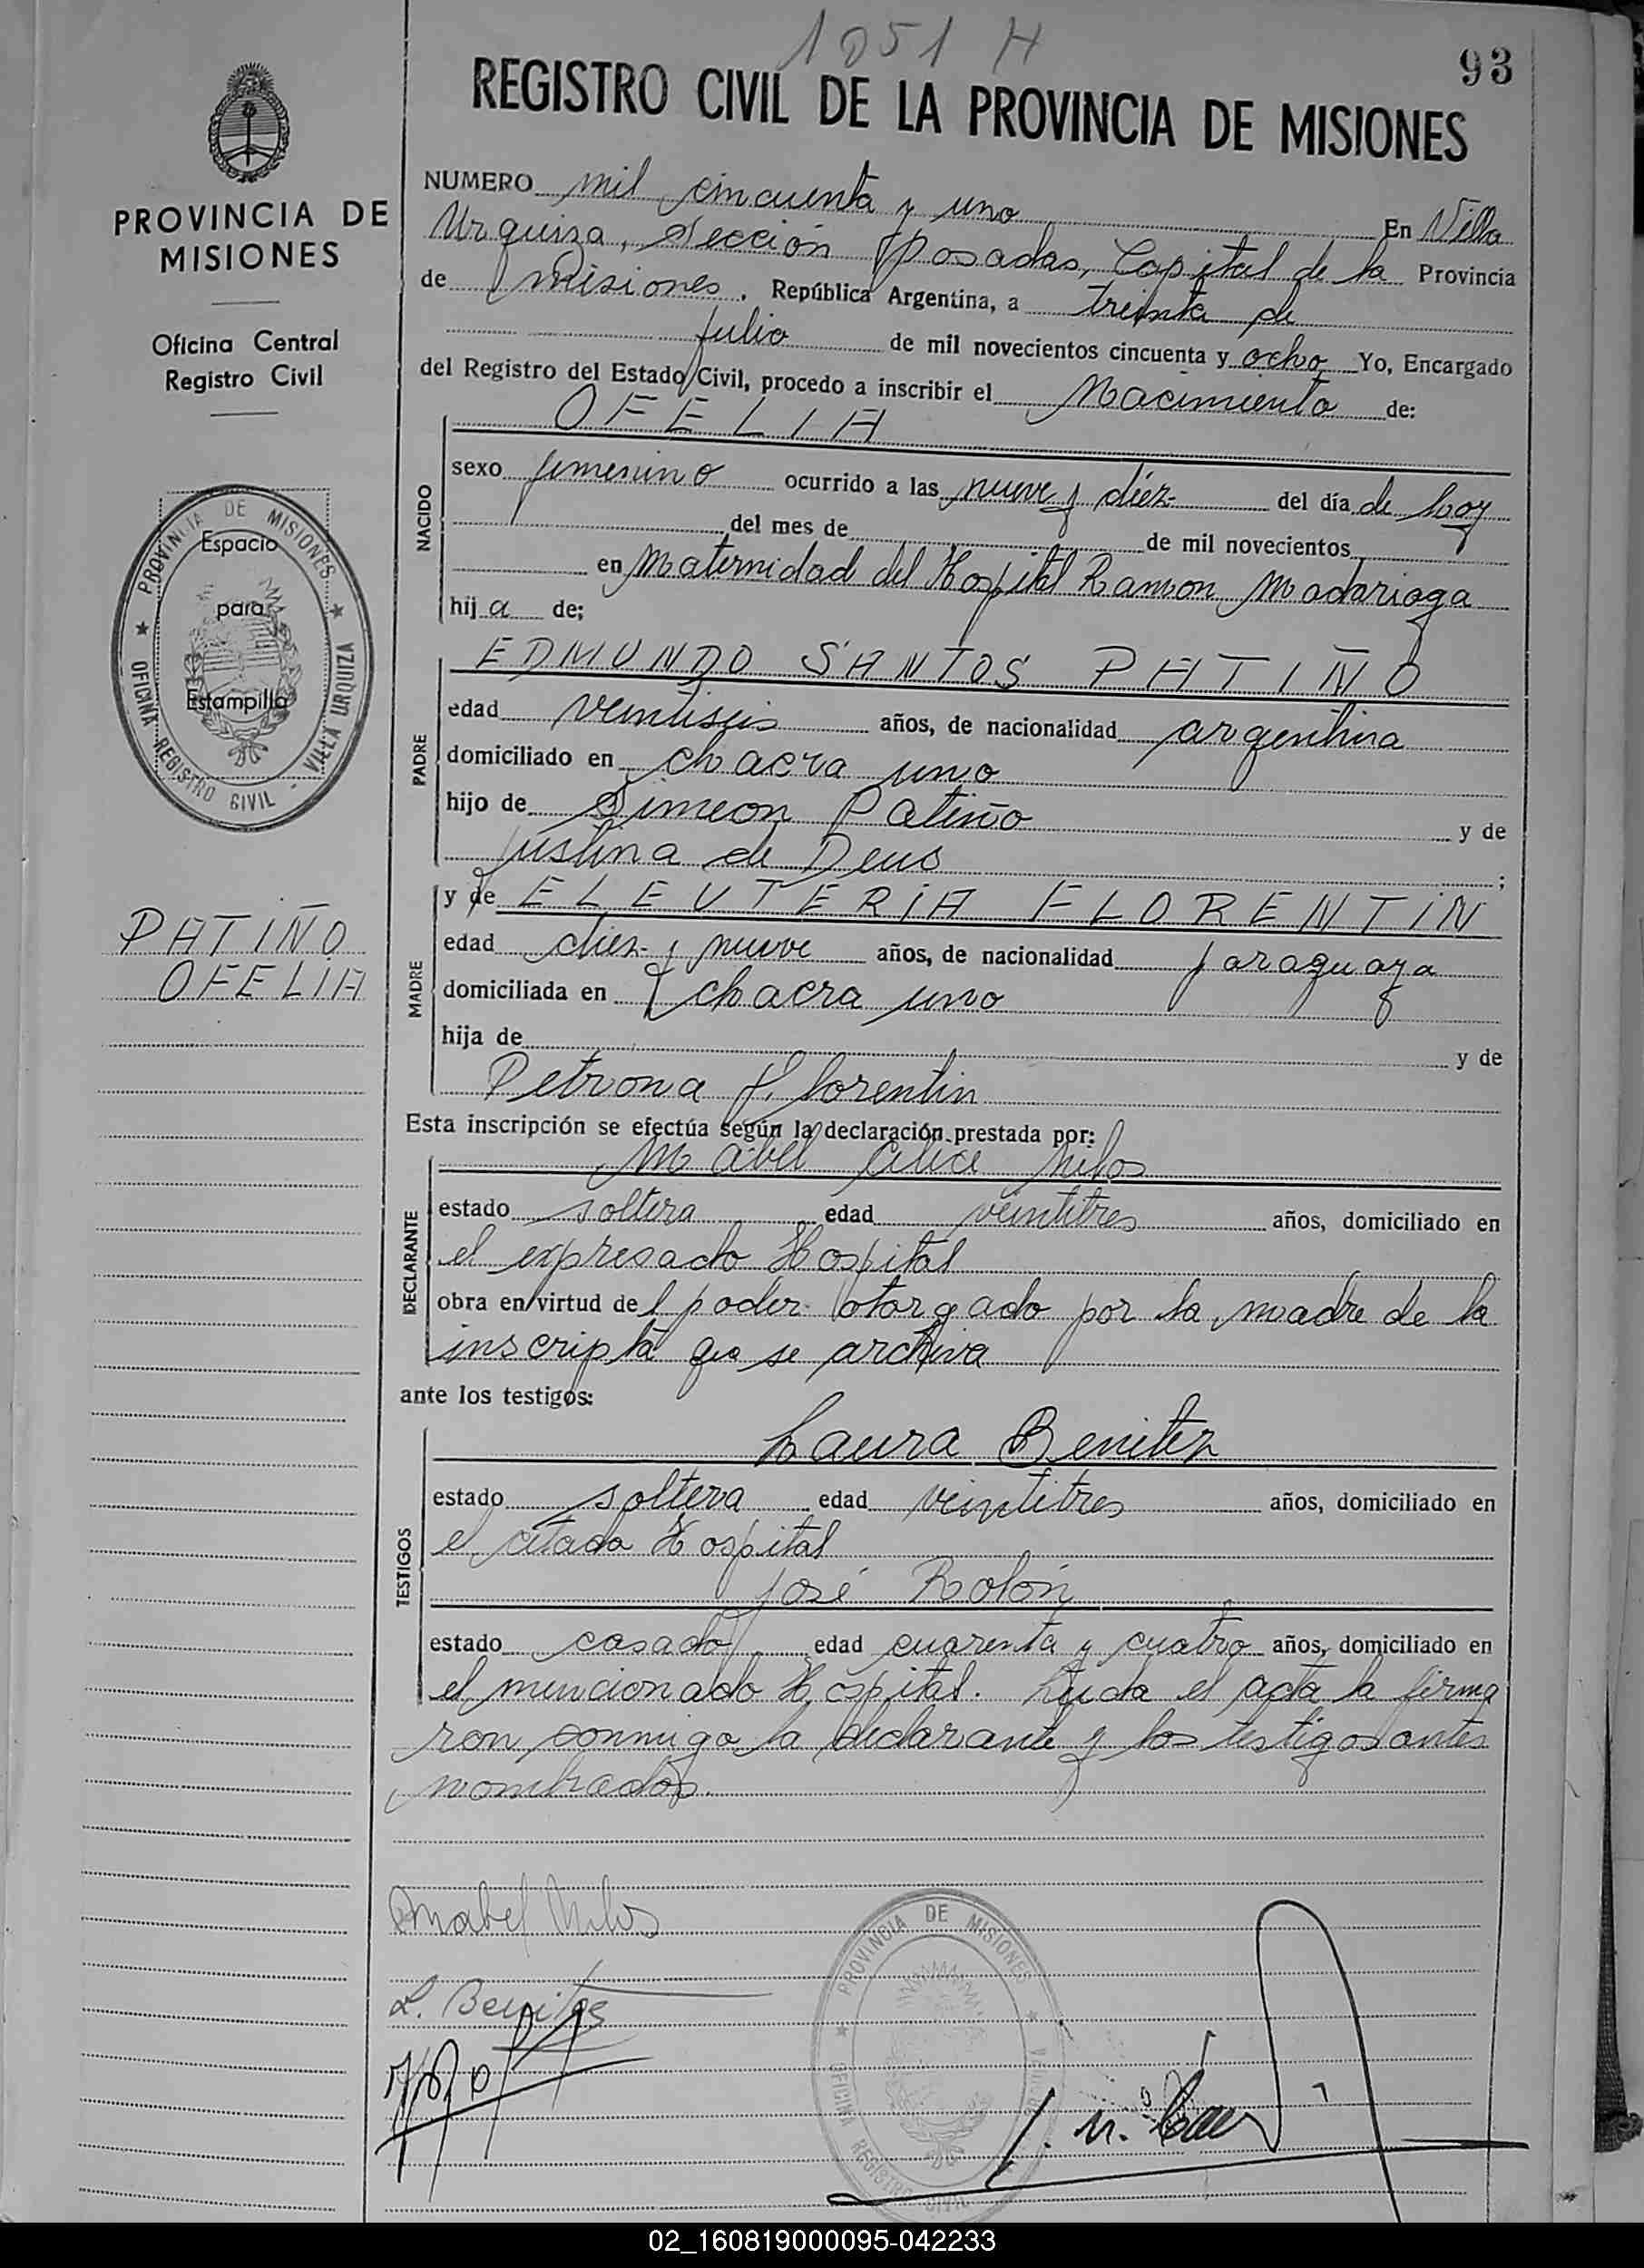 1051 H
93
REGISTRO CIVIL DE LA PROVINCIA DE MISIONES
PROVINCIA DE
MISIONES
Oficina Central
Registro Civil
PROVINCIA DE MISIONES ★ OFICINA REGISTRO CIVIL - VILLA URQUIZA ★
Espacio
para
Estampilla
PATIÑO
OFELIA
NUMERO mil cincuenta y uno En Villa
Urquiza, Sección Posadas, Capital de la Provincia
de Misiones. República Argentina, a treinta de
Julio de mil novecientos cincuenta y ocho Yo, Encargado
del Registro del Estado Civil, procedo a inscribir el Nacimiento de:
NACIDO
OFELIA
sexo femenino ocurrido a las nueve y diez del día de hoy
del mes de de mil novecientos
en Maternidad del Hospital Ramon Madariaga
hija de;
PADRE
EDMUNDO SANTOS PATIÑO
edad veintiseis años, de nacionalidad argentina
domiciliado en chacra uno
hijo de Simeon Patiño y de
Justina de Deus ;
MADRE
y de ELEUTERIA FLORENTIN
edad diez y nueve años, de nacionalidad paraguaya
domiciliada en chacra uno
hija de y de
Petrona Florentin
Esta inscripción se efectúa según la declaración prestada por:
DECLARANTE
Mabel Milos
estado soltera edad veintitres años, domiciliado en
el expresado Hospital
obra en virtud del poder otorgado por la madre de la
inscripta que se archiva
ante los testigos:
TESTIGOS
Laura Benitez
estado soltera edad veintitres años, domiciliado en
el citado Hospital
José Rolón
estado casado edad cuarenta y cuatro años, domiciliado en
el mencionado Hospital. Leida el acta la firma
ron conmigo la declarante y los testigos antes
nombrados.
Mabel Milos
L. Benites
PROVINCIA DE MISIONES ★ OFICINA REGISTRO CIVIL
02_160819000095-042233